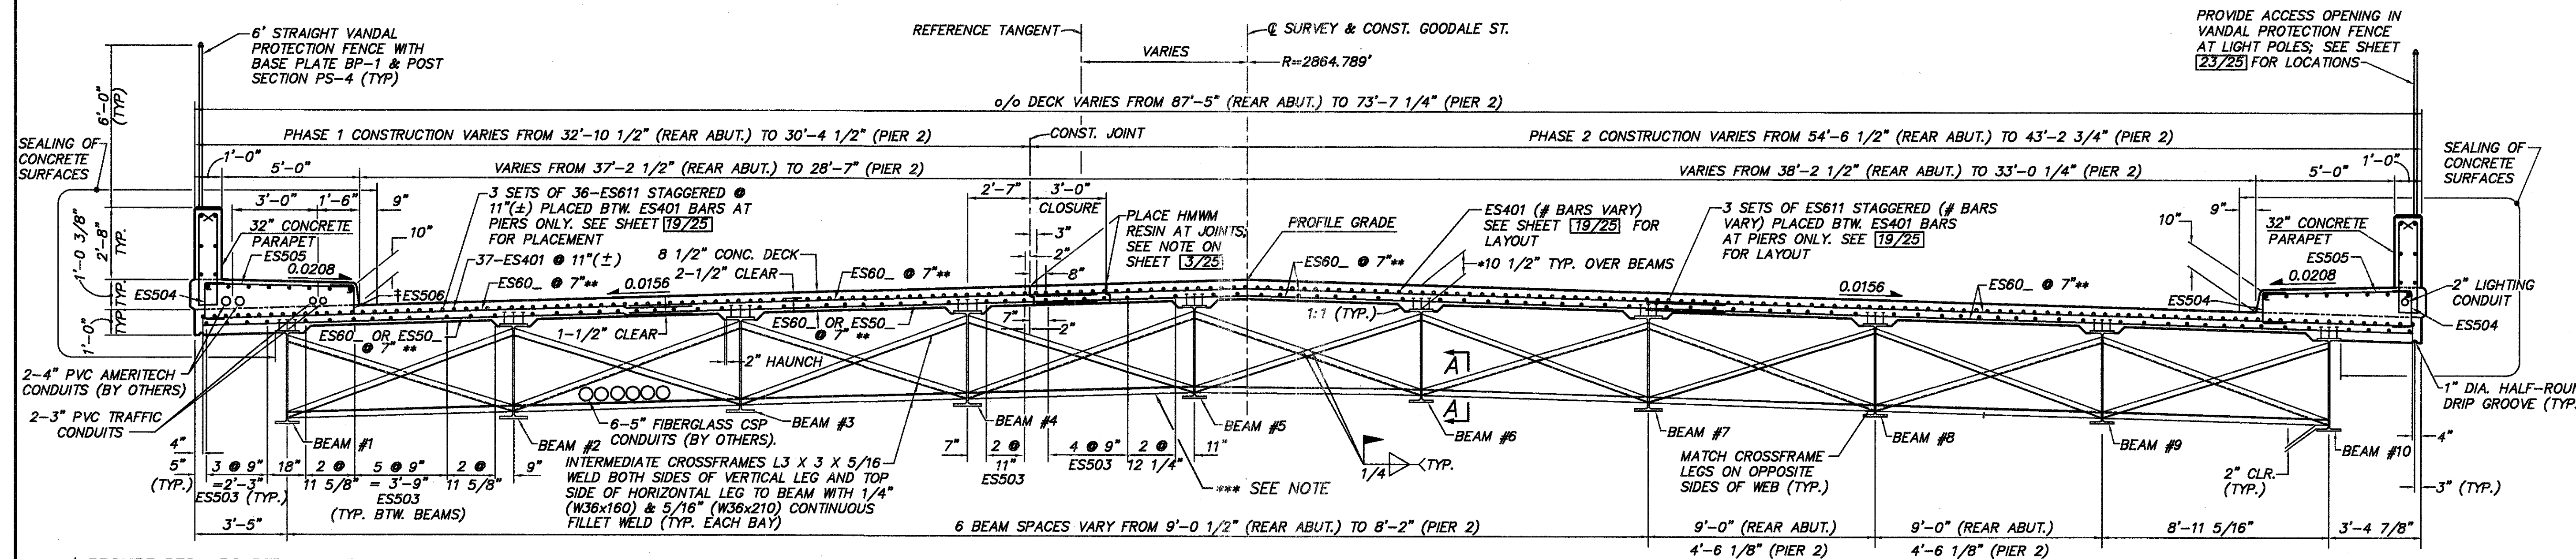 6' STRAIGHT VANDAL
PROTECTION FENCE WITH
BASE PLATE BP-1 & POST
SECTION PS-4 (TYP)
REFERENCE TANGENT
℄ SURVEY & CONST. GOODALE ST.
VARIES
R=2864.789'
PROVIDE ACCESS OPENING IN
VANDAL PROTECTION FENCE
AT LIGHT POLES; SEE SHEET
23/25 FOR LOCATIONS
6'-0"
(TYP)
o/o DECK VARIES FROM 87'-5" (REAR ABUT.) TO 73'-7 1/4" (PIER 2)
PHASE 1 CONSTRUCTION VARIES FROM 32'-10 1/2" (REAR ABUT.) TO 30'-4 1/2" (PIER 2)
CONST. JOINT
PHASE 2 CONSTRUCTION VARIES FROM 54'-6 1/2" (REAR ABUT.) TO 43'-2 3/4" (PIER 2)
SEALING OF
CONCRETE
SURFACES
1'-0"
5'-0"
VARIES FROM 37'-2 1/2" (REAR ABUT.) TO 28'-7" (PIER 2)
VARIES FROM 38'-2 1/2" (REAR ABUT.) TO 33'-0 1/4" (PIER 2)
5'-0"
1'-0"
SEALING OF
CONCRETE
SURFACES
3'-0"
1'-6"
9"
3 SETS OF 36-ES611 STAGGERED @
11"(±) PLACED BTW. ES401 BARS AT
PIERS ONLY. SEE SHEET 19/25
FOR PLACEMENT
2'-7"
3'-0"
CLOSURE
PLACE HMWM
RESIN AT JOINTS;
SEE NOTE ON
SHEET 3/25
PROFILE GRADE
ES401 (# BARS VARY)
SEE SHEET 19/25 FOR
LAYOUT
3 SETS OF ES611 STAGGERED (# BARS
VARY) PLACED BTW. ES401 BARS
AT PIERS ONLY. SEE 19/25
FOR LAYOUT
10"
9"
32" CONCRETE
PARAPET
ES505
1'-0 3/8"
2'-8"
TYP.
32" CONCRETE
PARAPET
ES505
10"
3"
2"
8"
8 1/2" CONC. DECK
2-1/2" CLEAR
37-ES401 @ 11"(±)
ES60_ @ 7"**
ES60_ @ 7"**
*10 1/2" TYP. OVER BEAMS
0.0208
0.0208
0.0156
0.0156
ES504
ES506
ES60_ @ 7"**
ES60_ @ 7"**
ES504
2" LIGHTING
CONDUIT
ES504
TYP
TYP
1'-0"
ES60_ OR ES50_
@ 7" **
1-1/2" CLEAR
ES60_ OR ES50_
@ 7" **
7"
2"
1:1 (TYP.)
2" HAUNCH
A
A
2-4" PVC AMERITECH
CONDUITS (BY OTHERS)
2-3" PVC TRAFFIC
CONDUITS
1" DIA. HALF-ROUN
DRIP GROOVE (TYP.
BEAM #1
BEAM #2
6-5" FIBERGLASS CSP
CONDUITS (BY OTHERS).
BEAM #3
BEAM #4
BEAM #5
BEAM #6
BEAM #7
BEAM #8
BEAM #9
BEAM #10
4"
5"
(TYP.)
3 @ 9"
=2'-3"
ES503 (TYP.)
18"
2 @
11 5/8"
5 @ 9"
= 3'-9"
ES503
(TYP. BTW. BEAMS)
2 @
11 5/8"
9"
INTERMEDIATE CROSSFRAMES L3 X 3 X 5/16
WELD BOTH SIDES OF VERTICAL LEG AND TOP
SIDE OF HORIZONTAL LEG TO BEAM WITH 1/4"
(W36x160) & 5/16" (W36x210) CONTINUOUS
FILLET WELD (TYP. EACH BAY)
7"
2 @
11"
ES503
4 @ 9"
ES503
2 @
12 1/4"
11"
*** SEE NOTE
1/4
TYP.
MATCH CROSSFRAME
LEGS ON OPPOSITE
SIDES OF WEB (TYP.)
2" CLR.
(TYP.)
4"
3" (TYP.)
3'-5"
6 BEAM SPACES VARY FROM 9'-0 1/2" (REAR ABUT.) TO 8'-2" (PIER 2)
9'-0" (REAR ABUT.)
4'-6 1/8" (PIER 2)
9'-0" (REAR ABUT.)
4'-6 1/8" (PIER 2)
8'-11 5/16"
3'-4 7/8"